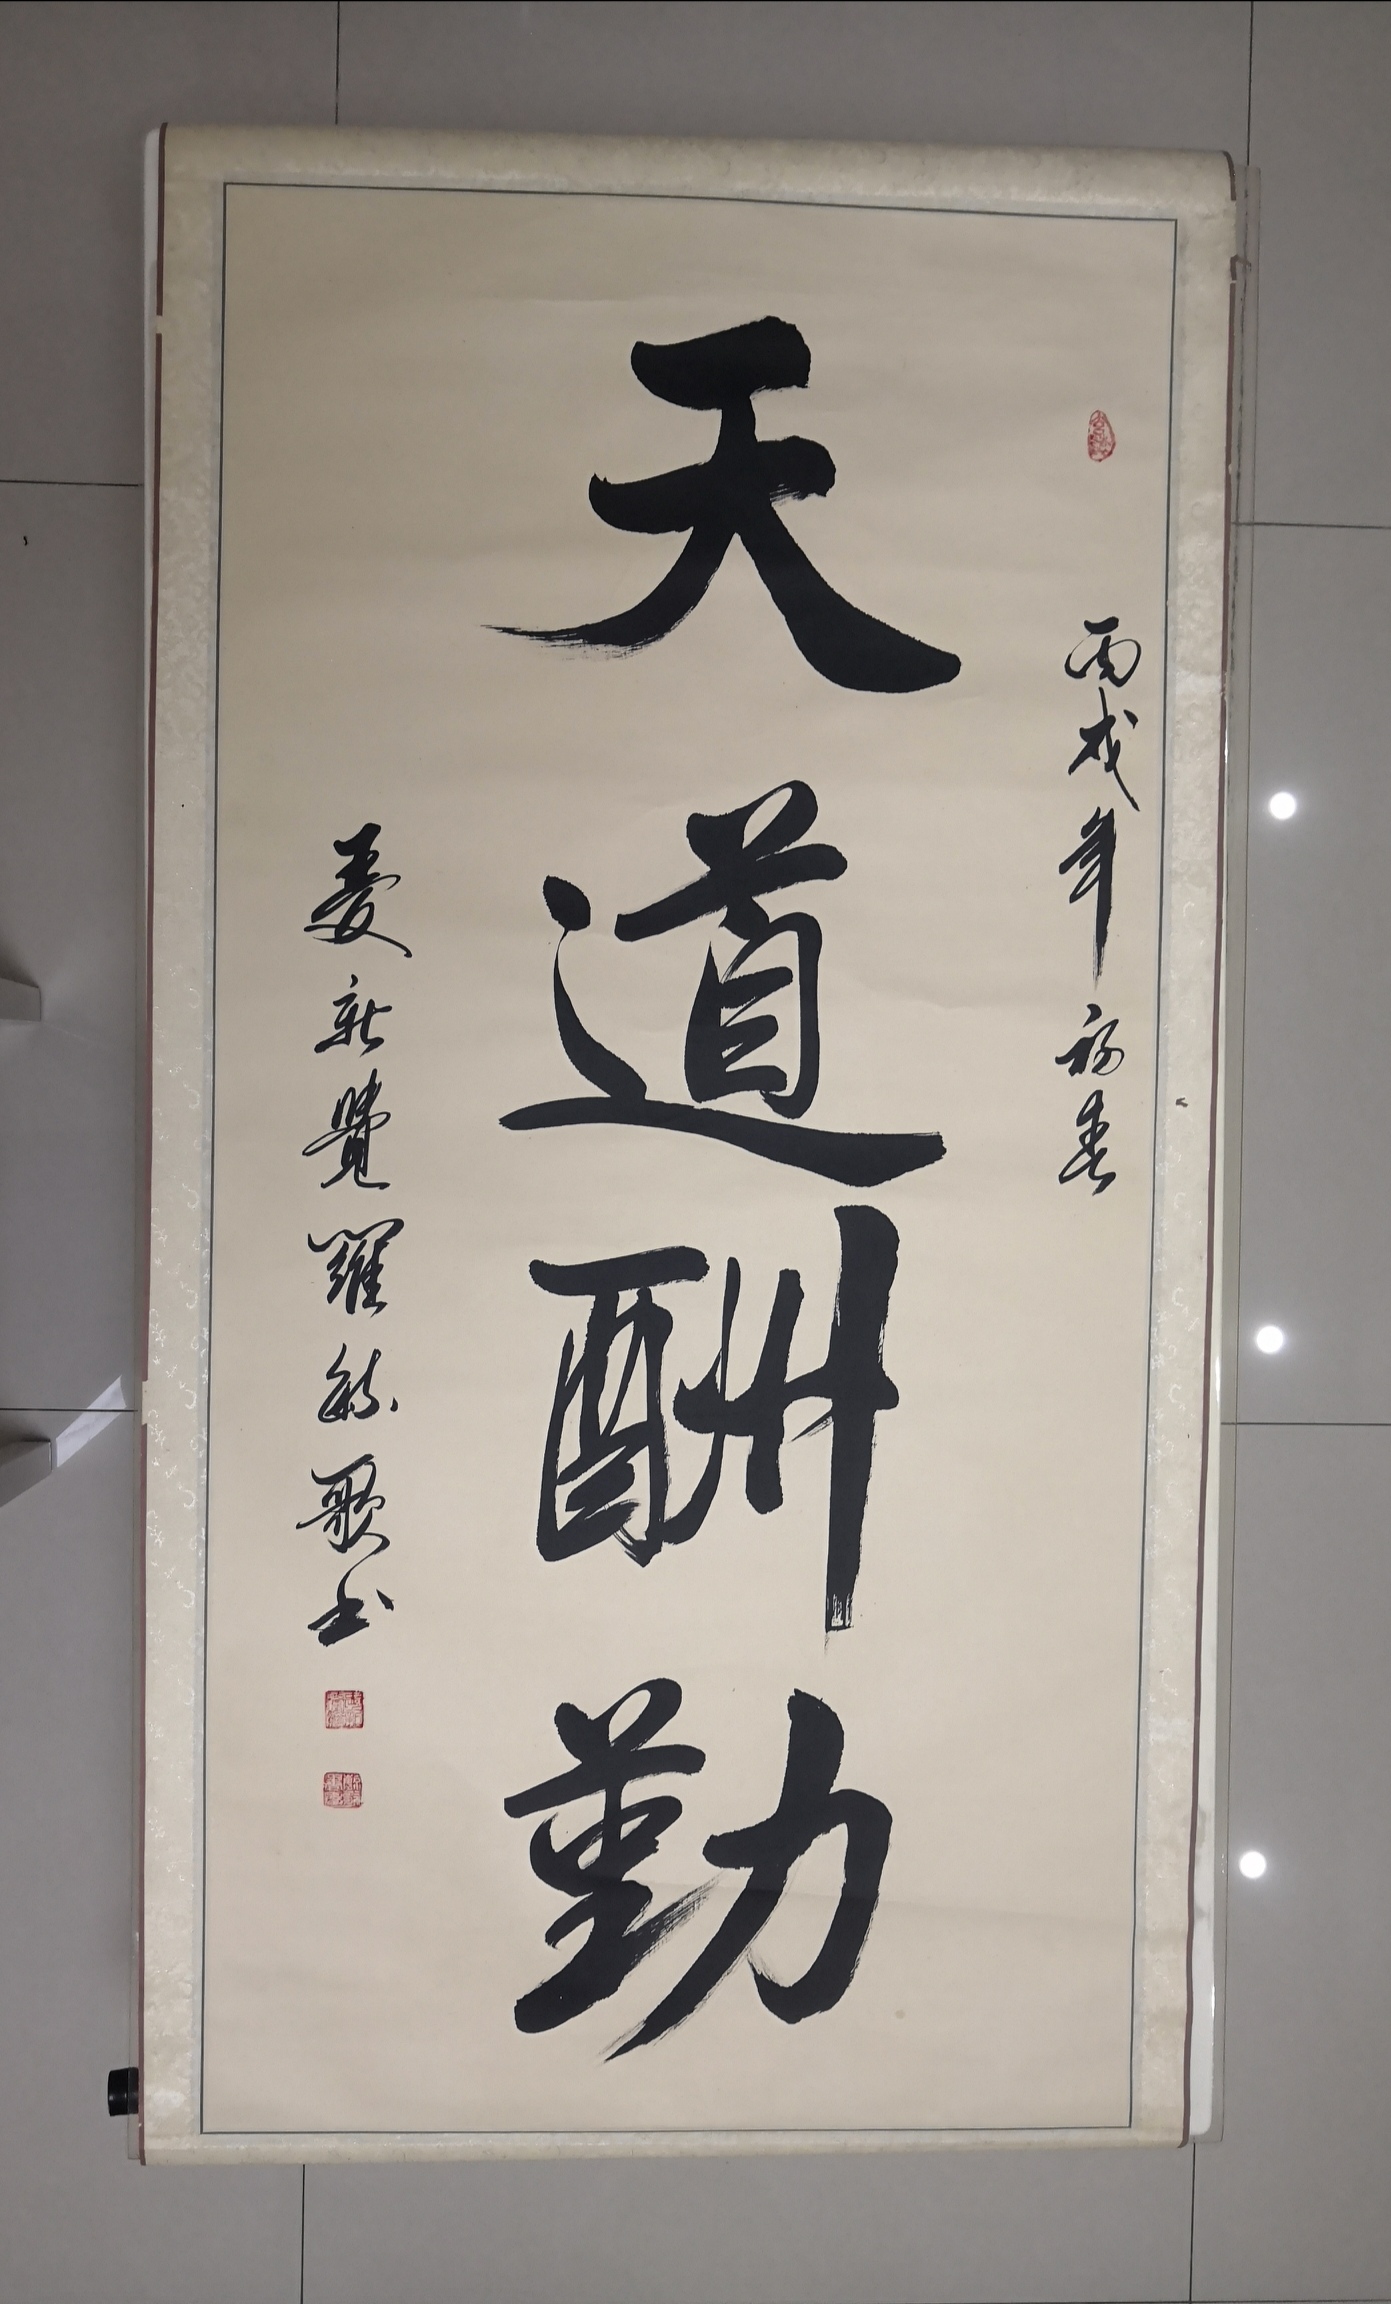 丙戌年初春
天道酬勤
爱新觉羅毓歌书